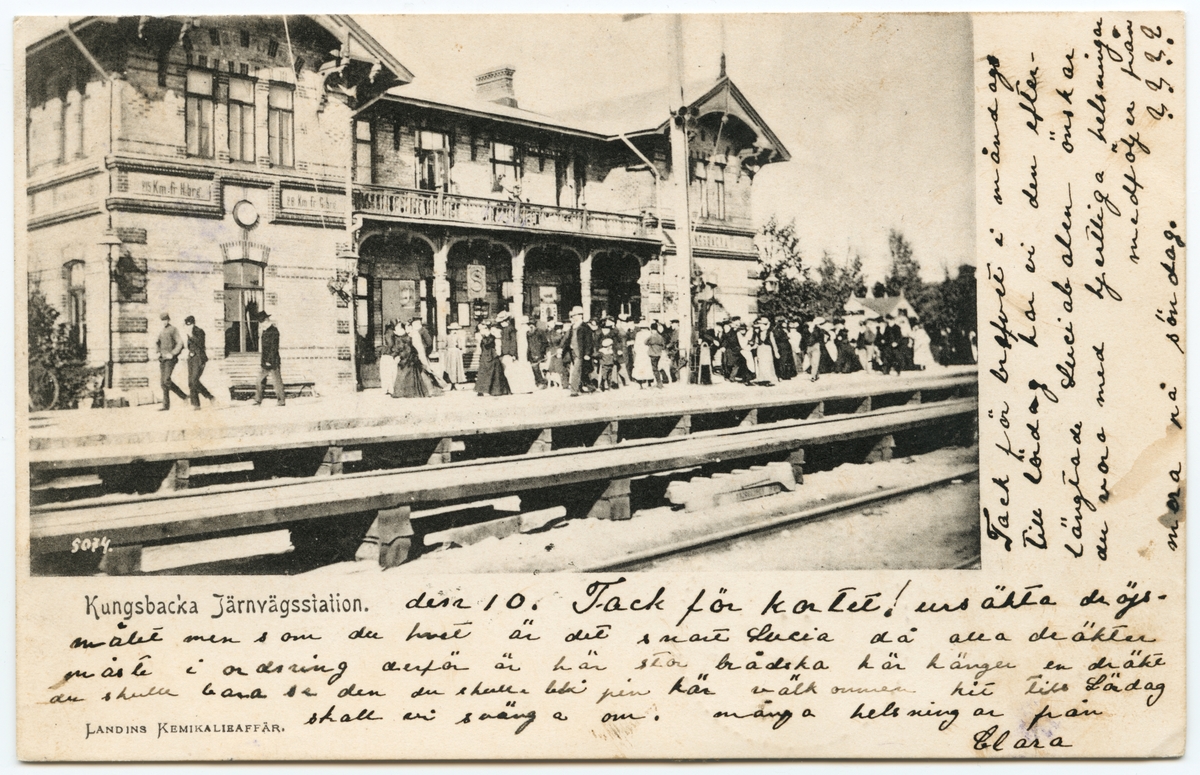 Km. fr. Hbrg.
Km. fr. Gbg.
5074.
Kungsbacka Järnvägsstation.
den 10. Tack för kortet! ursäkta dröjs-
målet men som du vet är det snart Lucia då alla dräkter
måste i ordning derför är här stor brådska här hänger en dräkt
du skulle bara se den du skulle bli fin här välkommen hit till Lördag
skall vi svänga om. många helsningar från
Clara
LANDINS KEMIKALIEAFFÄR.
Tack för brefvet i måndags
till lördag har vi den efter-
längtade Luciabalen önskar
du vore med hjertliga helsningar
medföljer från
? ? ? ?
mera på söndag.